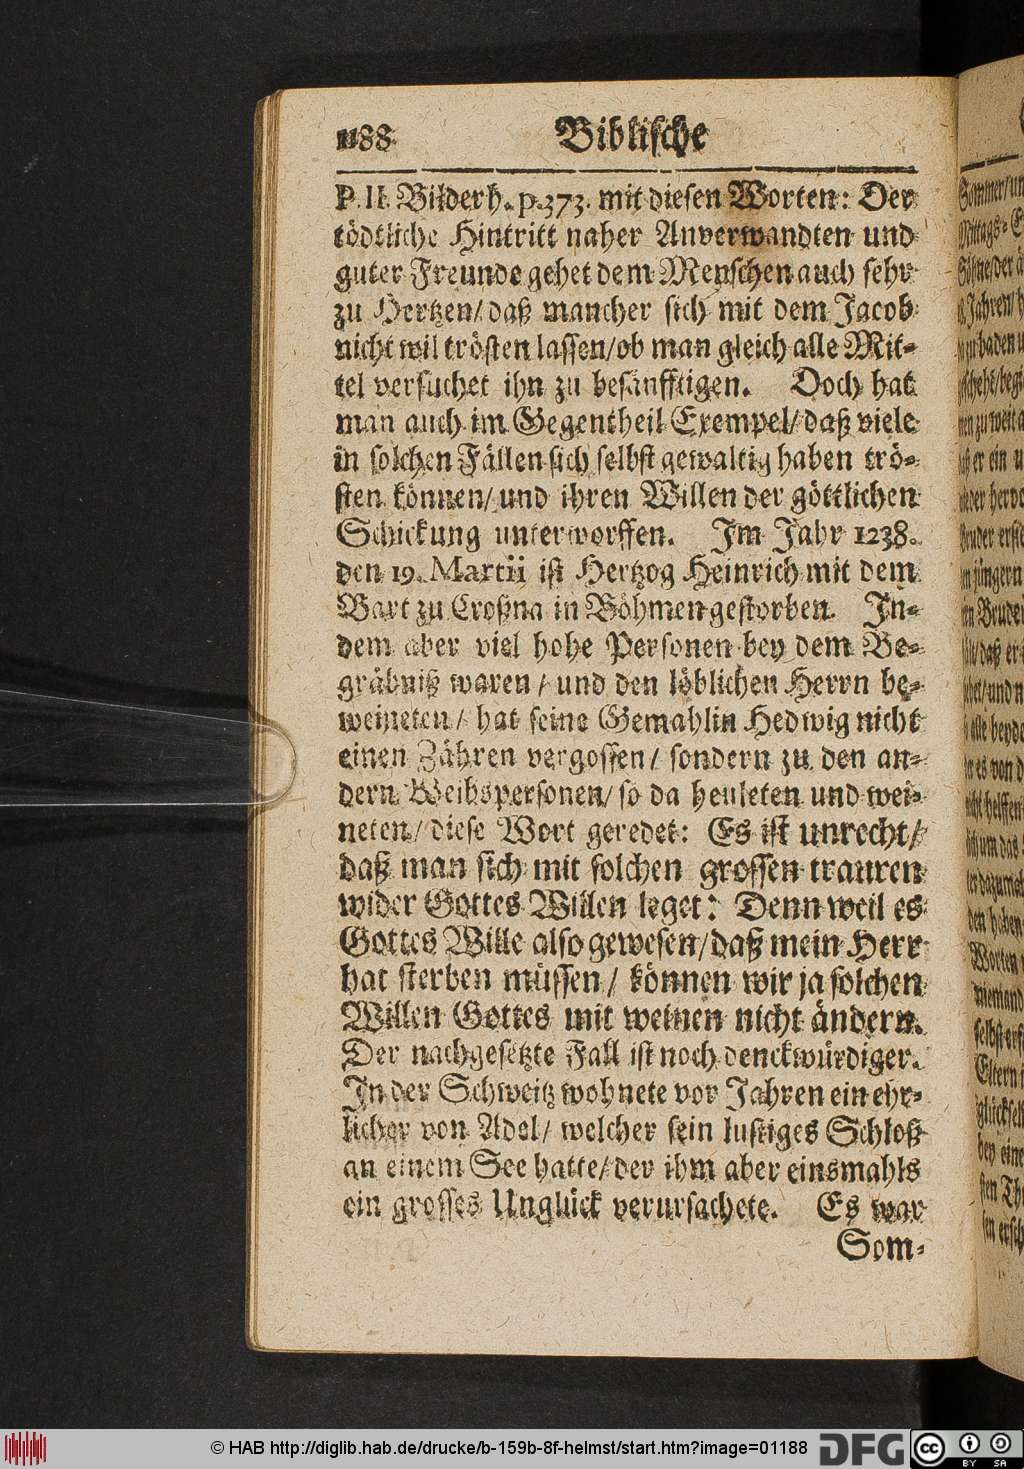 1188 Biblische
P. II. Bilderh. p. 373. mit diesen Worten: Der
tödtliche Hintritt naher Anverwandten und
guter Freunde gehet dem Menschen auch sehr
zu Hertzen/ daß mancher sich mit dem Jacob
nicht wil trösten lassen/ ob man gleich alle Mit-
tel versuchet ihn zu besänfftigen. Doch hat
man auch im Gegentheil Exempel/ daß viele
in solchen Fällen sich selbst gewaltig haben trö-
sten können/ und ihren Willen der göttlichen
Schickung unterworffen. Im Jahr 1238.
den 19. Martii ist Hertzog Heinrich mit dem
Bart zu Croßna in Böhmen gestorben. In-
dem aber viel hohe Personen bey dem Be-
gräbniß waren/ und den löblichen Herrn be-
weineten/ hat seine Gemahlin Hedwig nicht
einen Zähren vergossen/ sondern zu den an-
dern Weibspersonen/ so da heuleten und wei-
neten/ diese Wort geredet: Es ist unrecht/
daß man sich mit solchen grossen trauren
wider Gottes Willen leget: Denn weil es
Gottes Wille also gewesen/ daß mein Herr
hat sterben müssen/ können wir ja solchen
Willen Gottes mit weinen nicht ändern.
Der nachgesetzte Fall ist noch denckwürdiger.
In der Schweitz wohnete vor Jahren ein ehr-
licher von Adel/ welcher sein lustiges Schloß
an einem See hatte/ der ihm aber einsmahls
ein grosses Unglück verursachete. Es war
Som-
© HAB http://diglib.hab.de/drucke/b-159b-8f-helmst/start.htm?image=01188 DFG cc BY SA